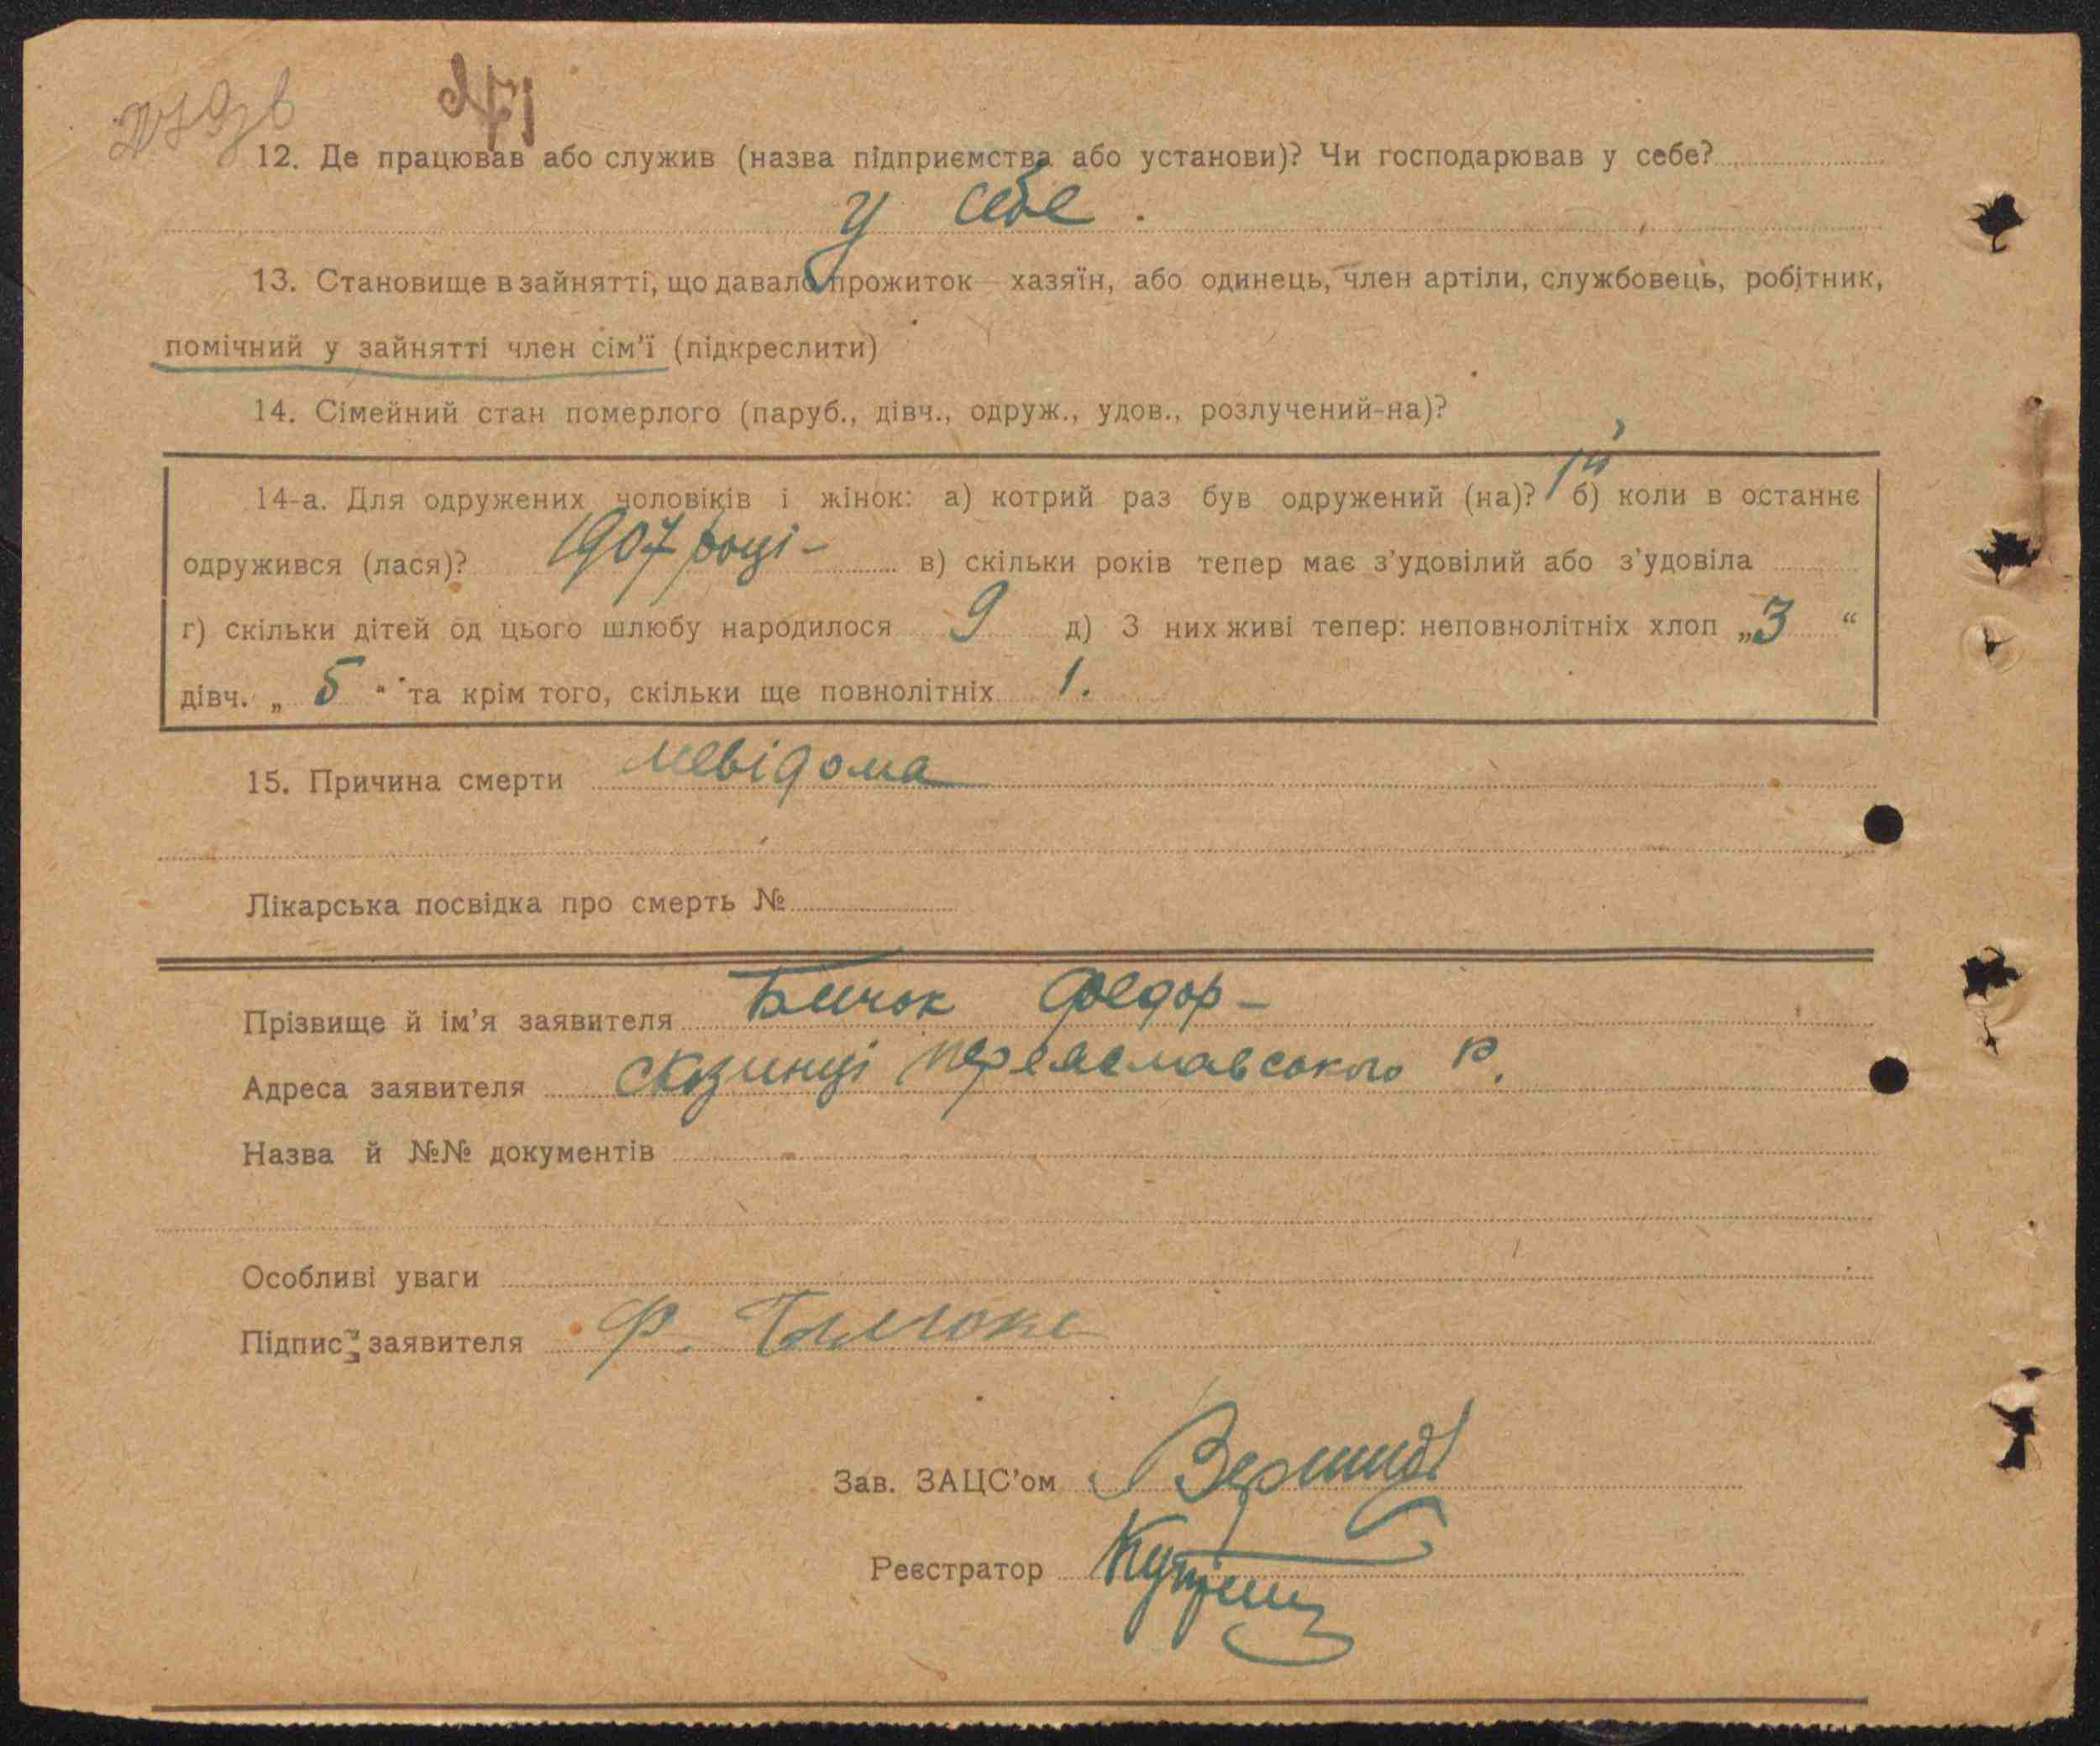 12. Де працював або служив (назва підприємства або установи)? Чи господарював у себе?
у себе.
13. Становище в зайнятті, що давало прожиток — хазяїн, або одинець, член артіли, службовець, робітник,
помічний у зайнятті член сім'ї (підкреслити)
14. Сімейний стан померлого (паруб., дівч., одруж., удов., розлучений-на)?
14-а. Для одружених чоловіків і жінок: а) котрий раз був одружений (на)? 1й б) коли в останнє
одружився (лася)? 1907 році – в) скільки років тепер має з'удовілий або з'удовіла
г) скільки дітей од цього шлюбу народилося 9 д) З них живі тепер: неповнолітніх хлоп „3“
дівч. „5“ та крім того, скільки ще повнолітніх 1.
15. Причина смерти невідома
Лікарська посвідка про смерть №
Прізвище й ім'я заявителя Бичок Федор –
Адреса заявителя с Козинці Переяславського р.
Назва й №№ документів
Особливі уваги
Підпис заявителя Ф.
Зав. ЗАЦС'ом
Реєстратор